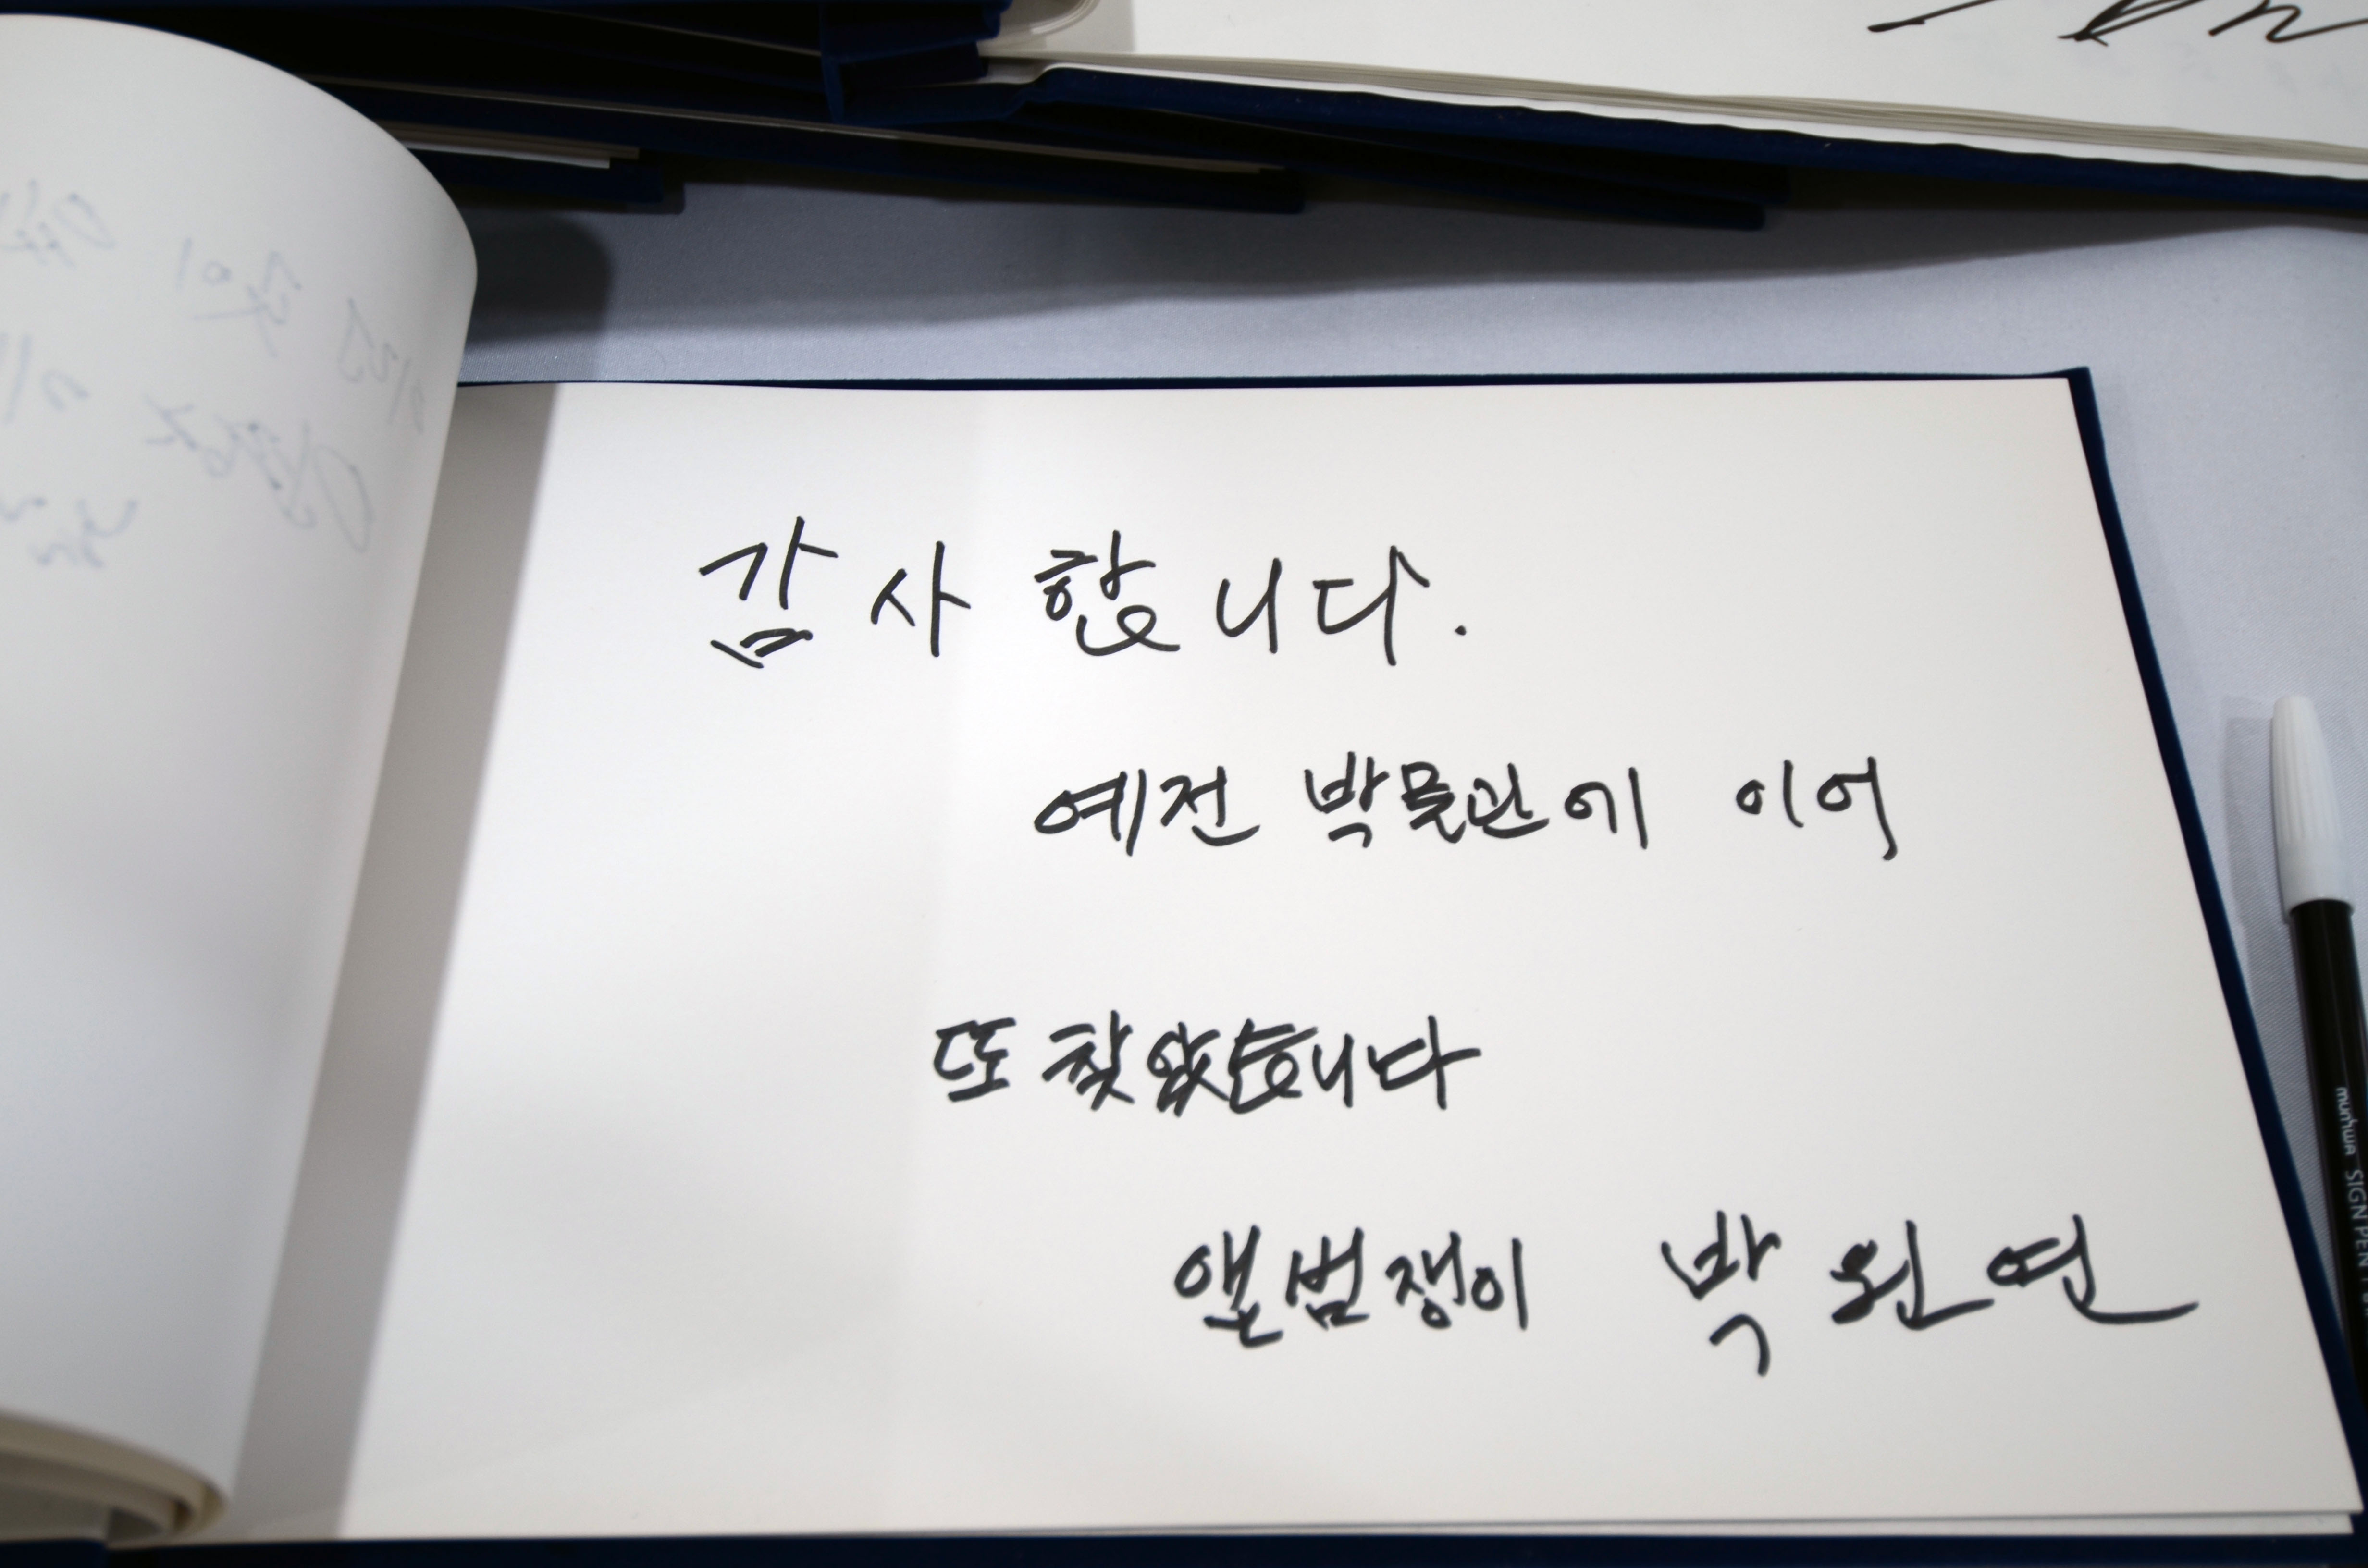 감사합니다.
예전 박물관에 이어
또 찾았습니다
앨범쟁이 박원연
munhwa SIGN PEN